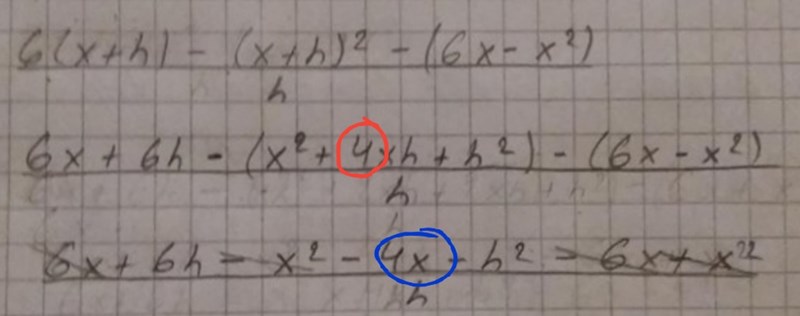 6(x+h) - (x+h)² - (6x - x²)
h
6x + 6h - (x² + 4xh + h²) - (6x - x²)
h
6x + 6h - x² - 4x - h² - 6x + x²
h